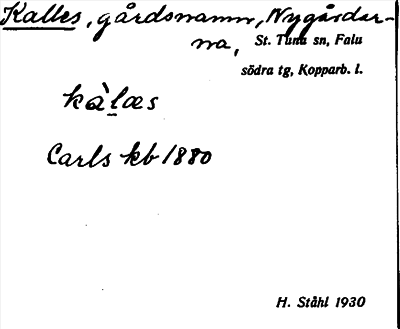 Kalles, gårdsnamn, Nygårdar-
na, St. Tuna sn, Falu
södra tg, Kopparb. l.
kàlæs
Carls kb 1880
H. Ståhl 1930